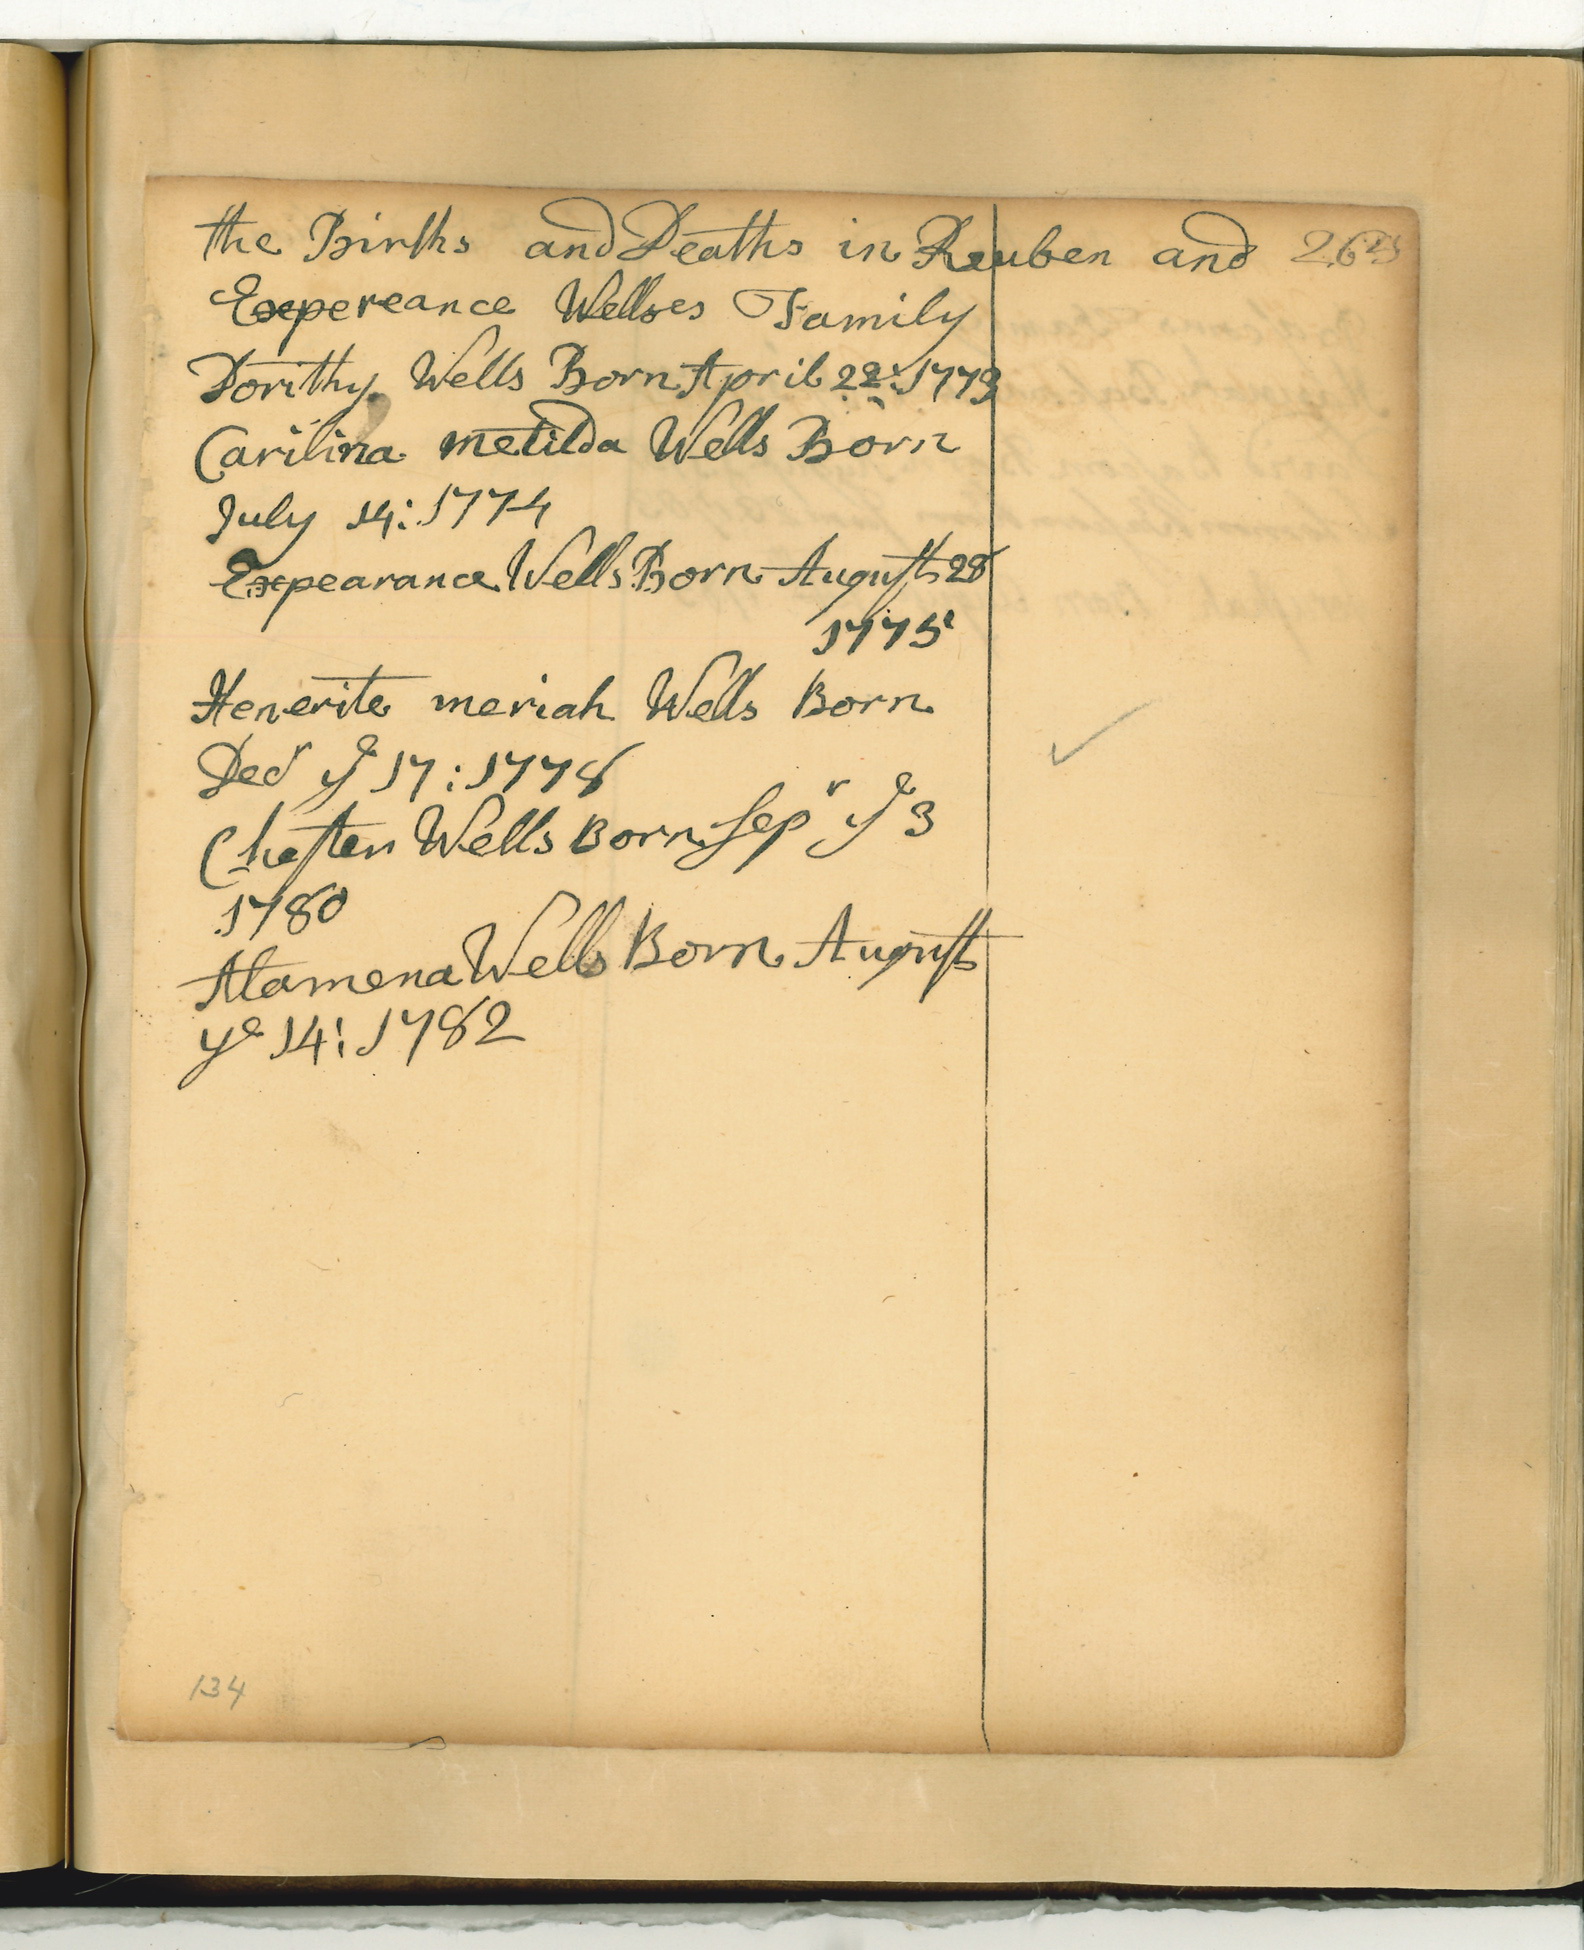 the Births and Deaths in Reuben and 265
Expereance Wellses Family
Dorithy Wells Born April 22: 1773
Carilina metilda Wells Born
July 14: 1774
Expearance Wells Born August 28
1775
Henerite meriah Wells Born
Decr ye 17: 1778
Chesten Wells Born Sepr ye 3
1780
Alamena Wells Born August
ye 14: 1782
134